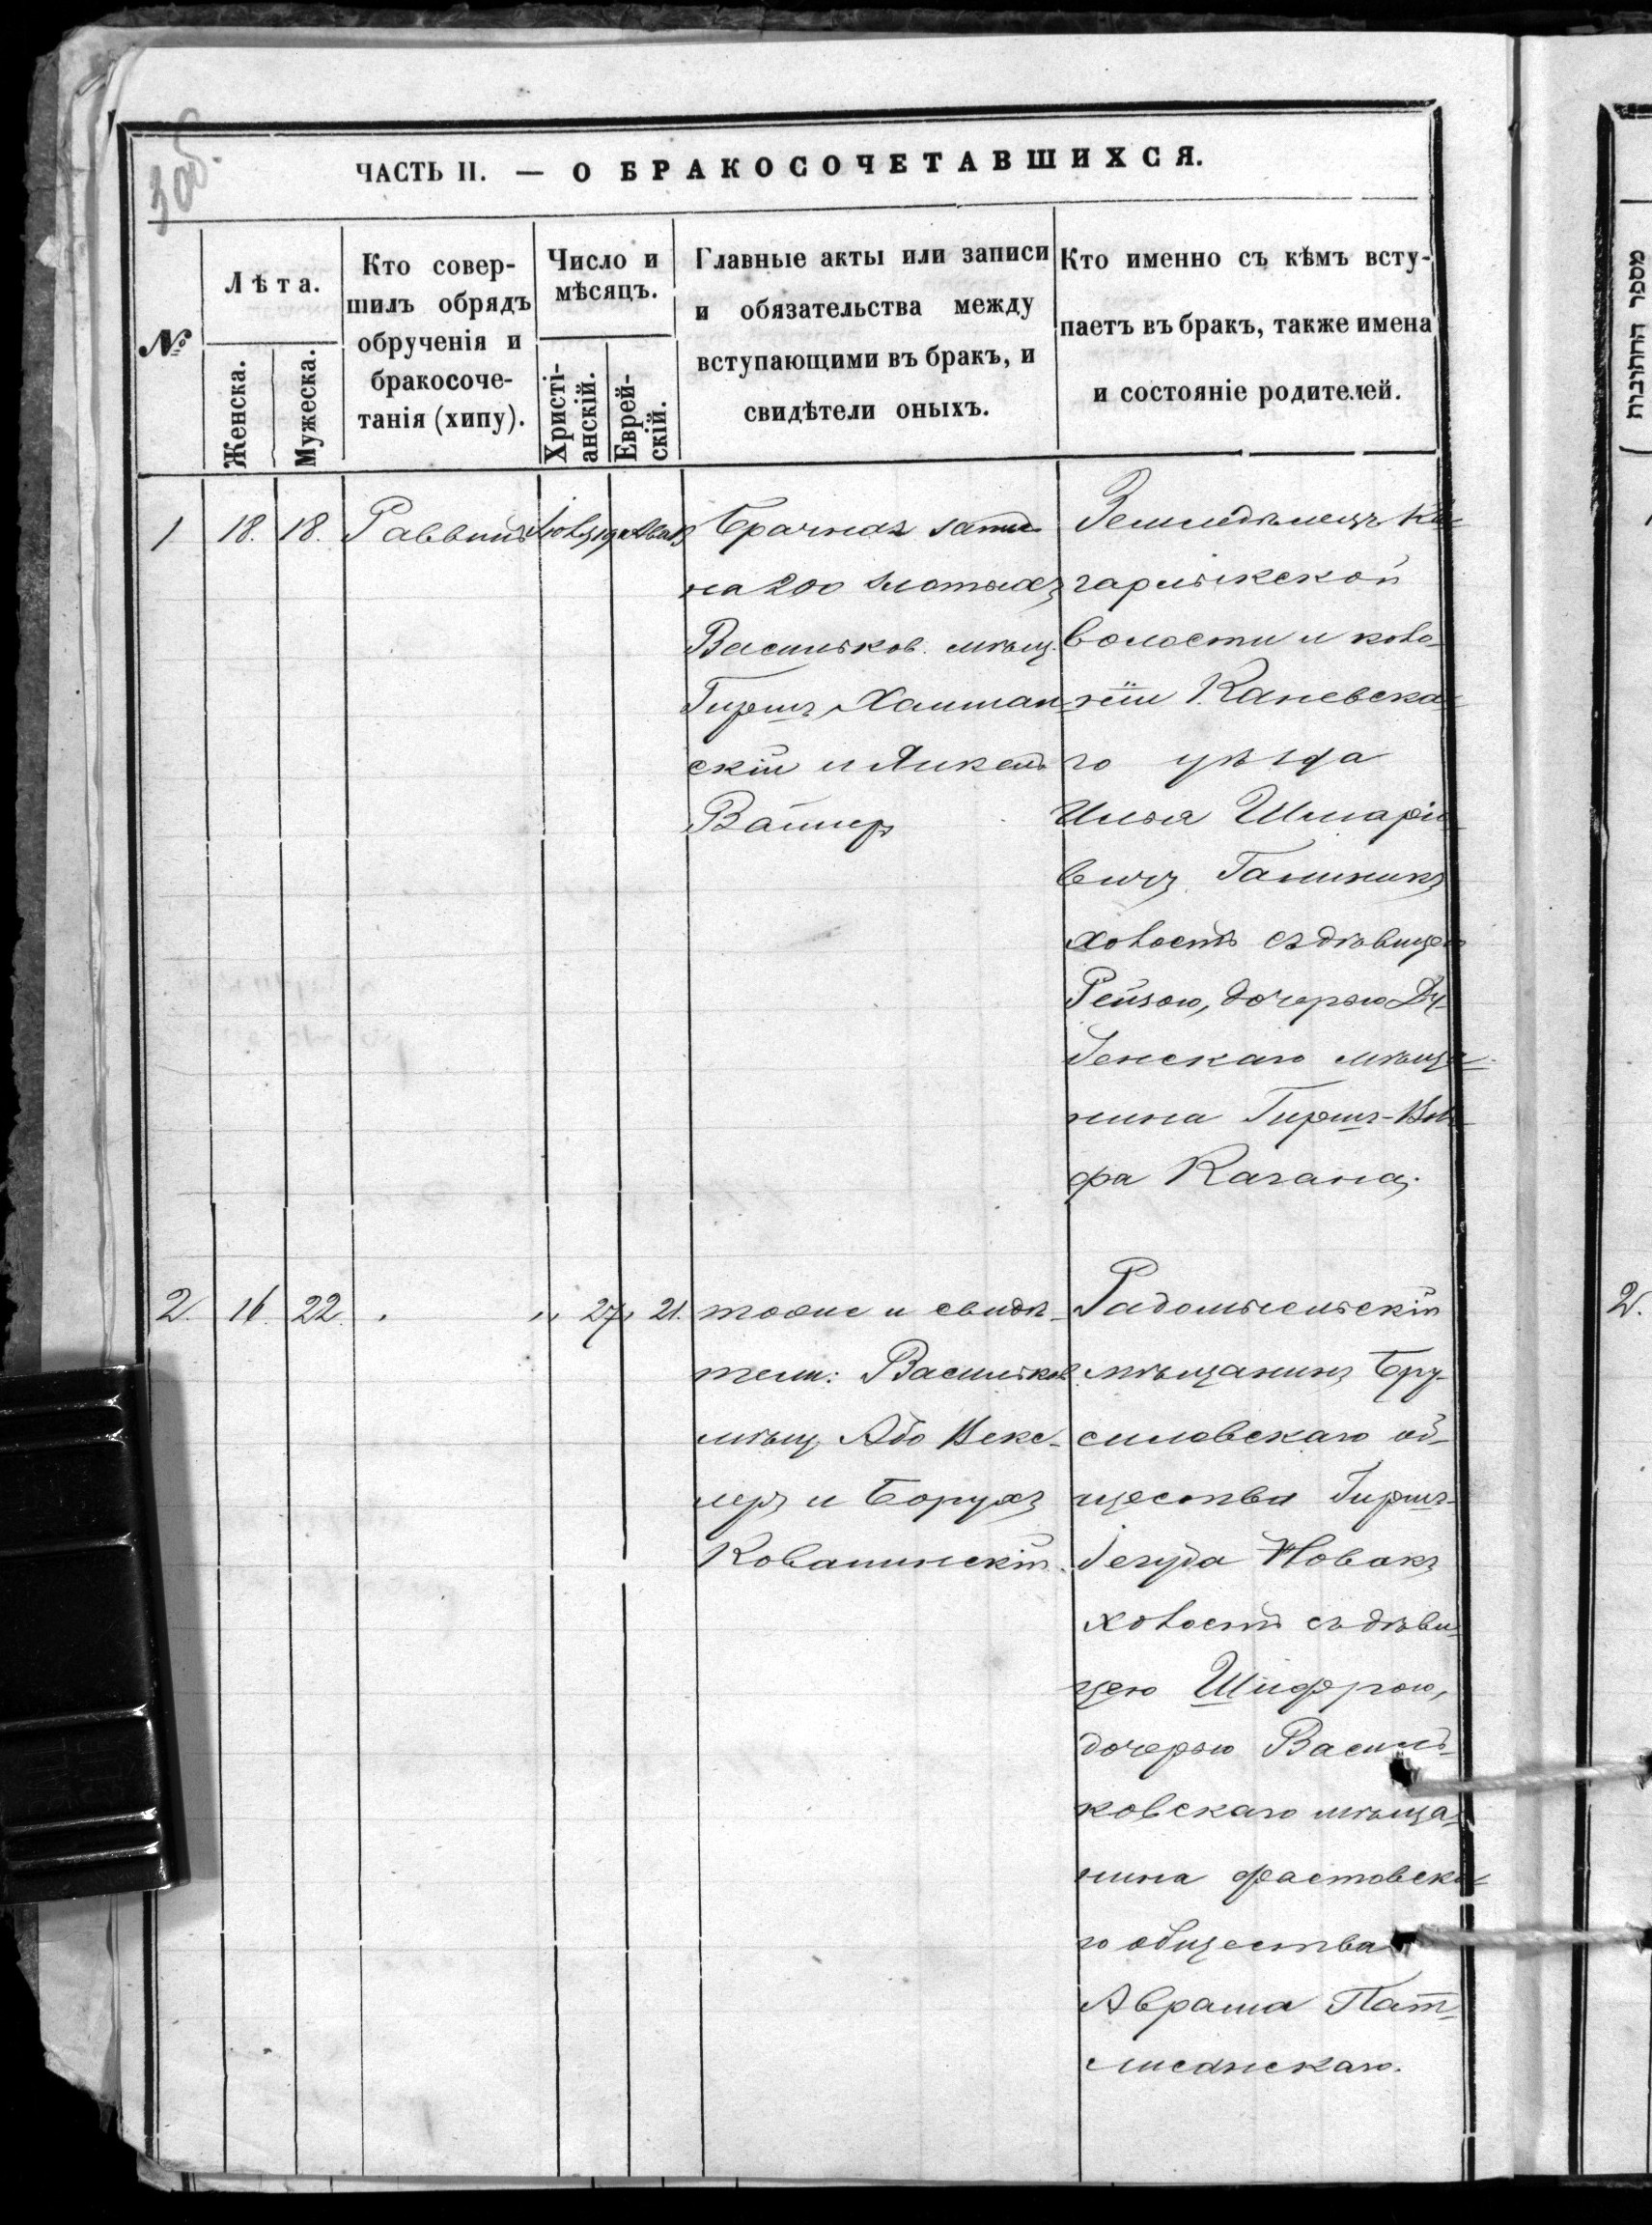 30об.
ЧАСТЬ II. — О БРАКОСОЧЕТАВШИХСЯ.
№
Лѣта.
Женска.
Мужеска.
Кто совер-
шилъ обрядъ
обрученія и
бракосоче-
танія (хипу).
Число и
мѣсяцъ.
Христі-
анскій.
Еврей-
скій.
Главные акты или записи
и обязательства между
вступающими въ бракъ, и
свидѣтели оныхъ.
Кто именно съ кѣмъ всту-
паетъ въ бракъ, также имена
и состояніе родителей.
1
18.
18.
Раввинъ
Іюль 19
Ава 13
Брачная запись
на 200 злотыхъ
Васильков. мѣщ.
Гиршъ Хаитан-
скій и Янкель
Вайнер
Земледѣлецъ Ка-
гарлыкской
волости и коло-
ніи Каневска-
го уѣзда
Илья Шмаріо-
вичъ Галиникъ
холостъ съ дѣвицею
Рейзею, дочерью Ду-
бенскаго мѣща-
нина Гиршъ-Воль-
фа Кагана.
2.
16.
22.
„ 27
„ 21.
тоже и свидѣ-
тели: Васильков.
мѣщ. Або Векс-
леръ и Борухъ
Ковалинскій.
Радомысльскій
мѣщанинъ Бру-
силовскаго об-
щества Гиршъ-
Іегуда Новакъ
холостъ съ дѣви-
цею Шифрою,
дочерью Василь-
ковскаго мѣща-
нина Фастовска-
го общества
Аврама Пат-
лисанскаго.
מספר החתונות
2.